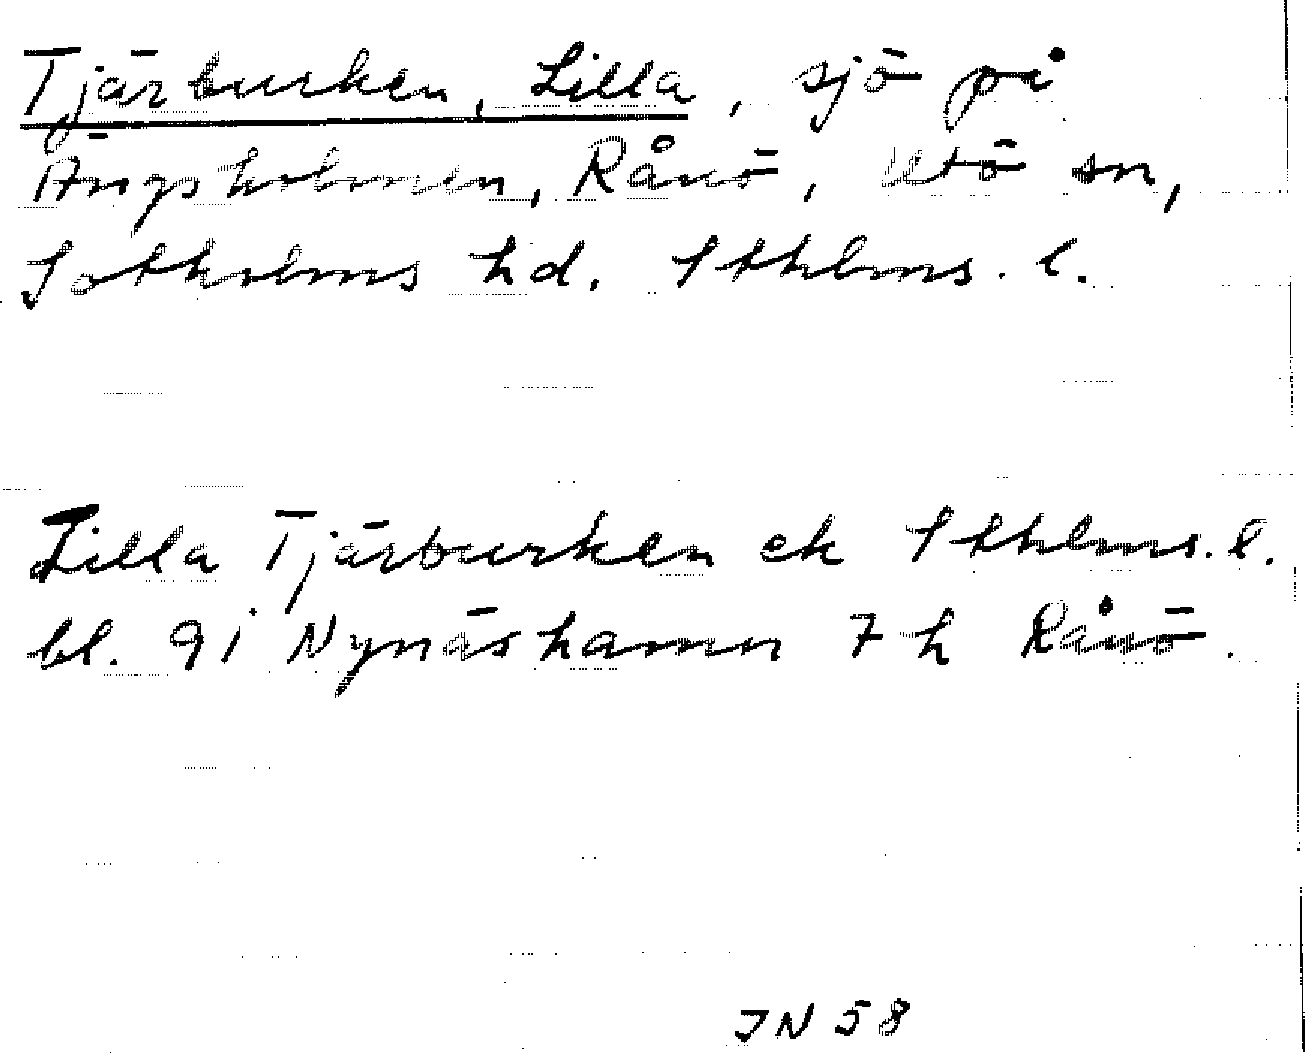 Tjärburken, Lilla, sjö på
Ängsholmen, Rånö, Utö sn,
Sotholms hd. Sthlms. l.
Lilla Tjärburken ek Sthlms. l.
bl. 91 Nynäshamn 7 h Rånö.
JN 58